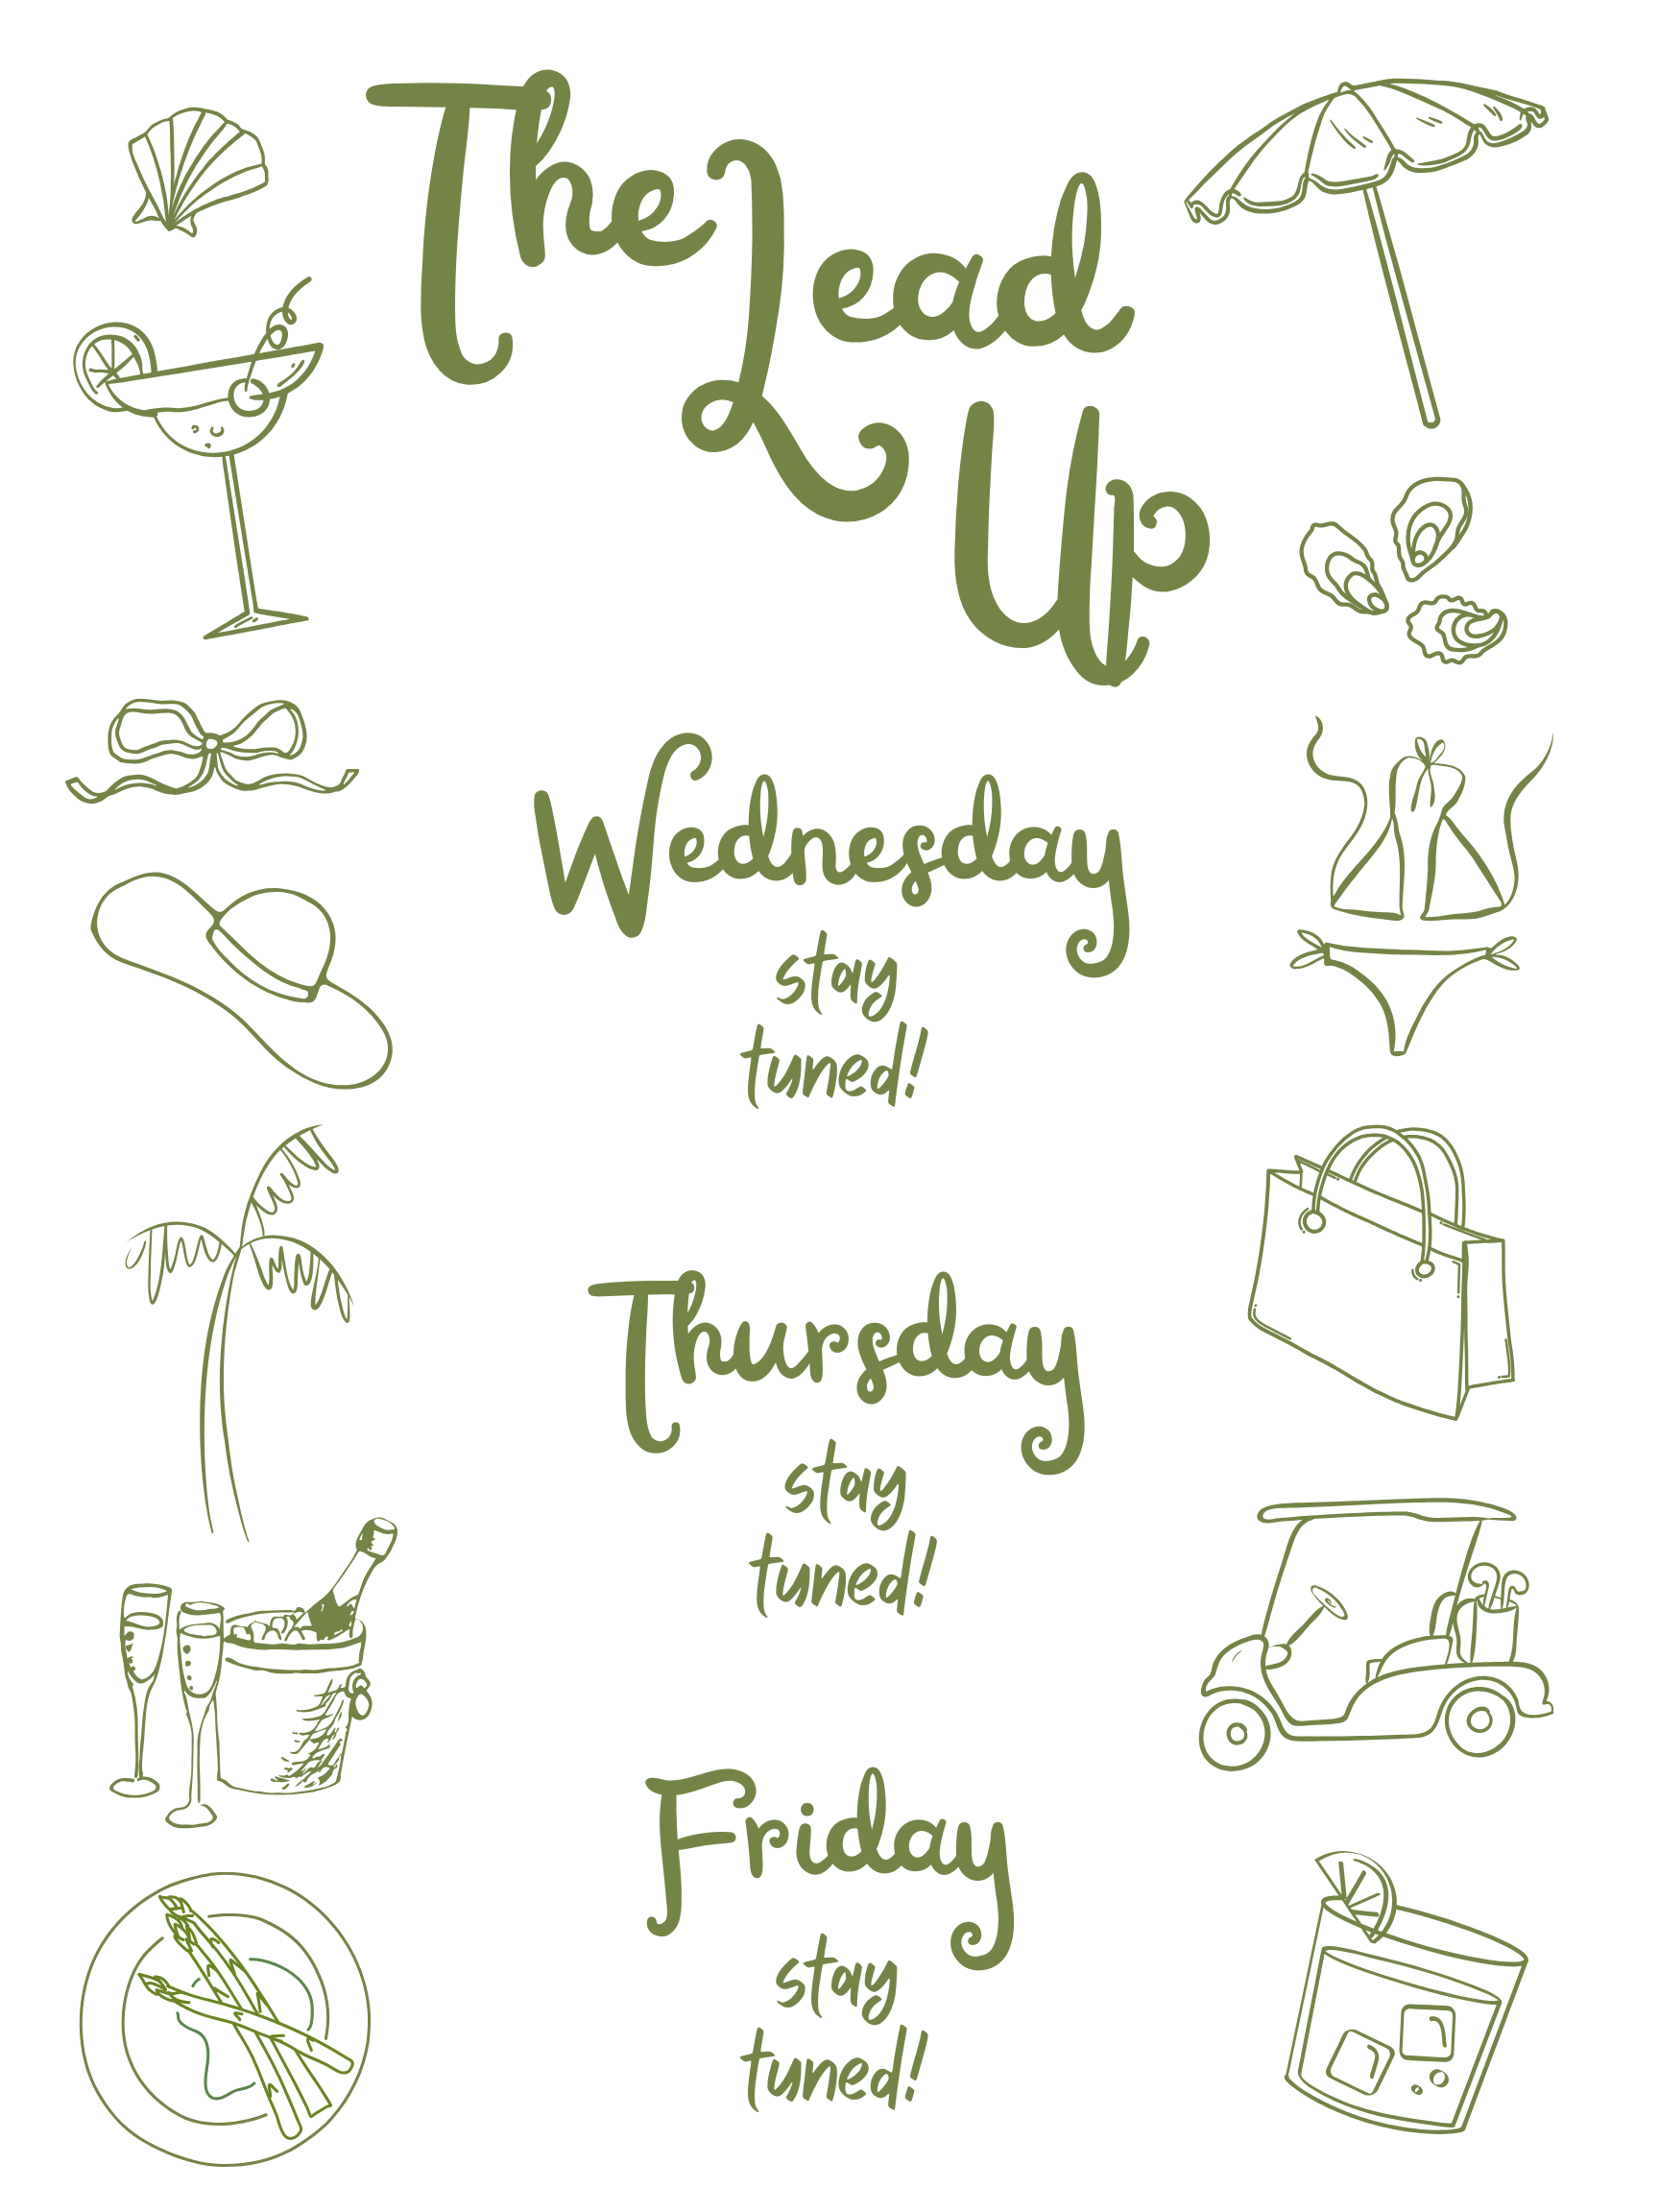 The Lead
Up
Wednesday
stay
tuned!
Thursday
stay
tuned!
Friday
stay
tuned!